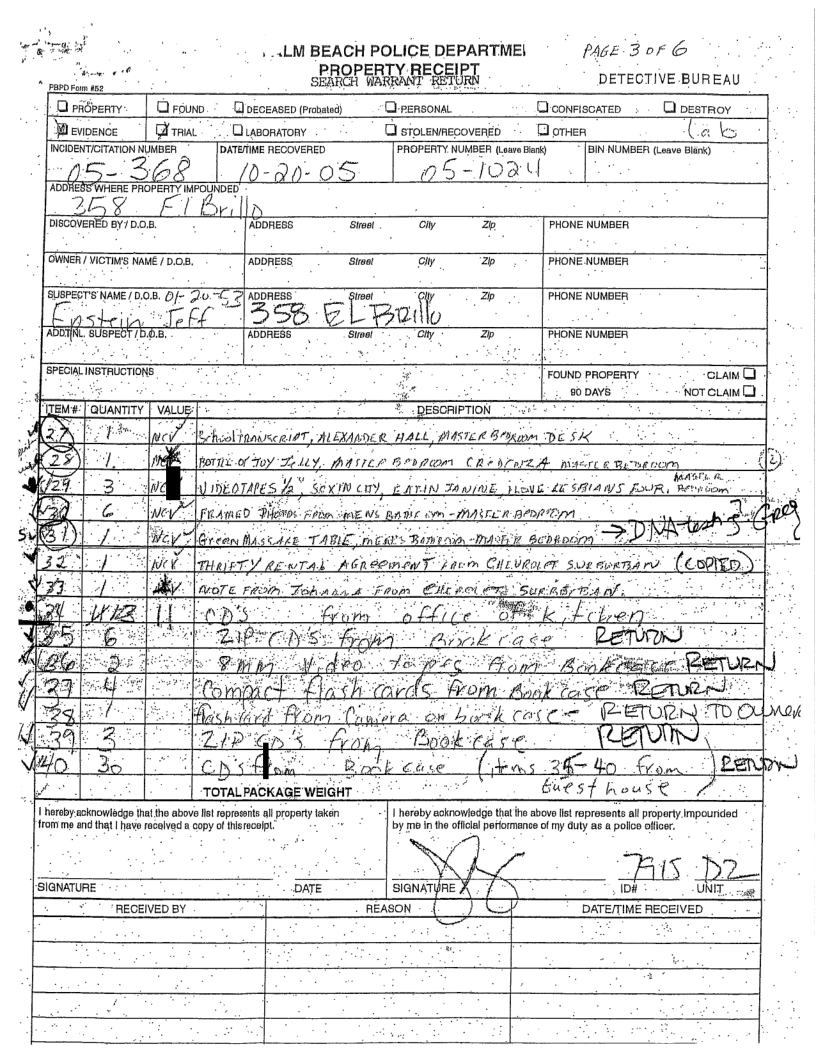 LM BEACH POLICE DEPARTME PAGE 3 OF 6
PROPERTY RECEIPT
SEARCH WARRANT RETURN DETECTIVE BUREAU
PBPD Form #52
PROPERTY FOUND DECEASED (Probated) PERSONAL CONFISCATED DESTROY
EVIDENCE TRIAL LABORATORY STOLEN/RECOVERED OTHER Lab
INCIDENT/CITATION NUMBER DATE/TIME RECOVERED PROPERTY NUMBER (Leave Blank) BIN NUMBER (Leave Blank)
05-368 10-20-05 05-1024
ADDRESS WHERE PROPERTY IMPOUNDED
358 El Brillo
DISCOVERED BY / D.O.B. ADDRESS Street City Zip PHONE NUMBER
OWNER / VICTIM'S NAME / D.O.B. ADDRESS Street City Zip PHONE NUMBER
SUSPECT'S NAME / D.O.B. 01-20-53 ADDRESS Street City Zip PHONE NUMBER
Epstein Jeff 358 EL Brillo
ADDT'NL. SUSPECT / D.O.B. ADDRESS Street City Zip PHONE NUMBER
SPECIAL INSTRUCTIONS FOUND PROPERTY CLAIM
90 DAYS NOT CLAIM
ITEM # QUANTITY VALUE DESCRIPTION
27 1 NCV School TRANSCRIPT, ALEXANDER HALL, MASTER BEDROOM DESK
28 1 BOTTLE OF JOY JELLY, MASTER BEDROOM CREDENZA MASTER BEDROOM (2)
29 3 NC VIDEOTAPES 1/2", SEX IN CITY, EATIN JANINE, I LOVE LESBIANS FOUR, MASTER BEDROOM
30 6 NCV FRAMED PHOTOS FROM MENS BATHROOM-MASTER BEDROOM
31 1 NCV Green MASSAGE TABLE, MEN'S BATHROOM-MASTER BEDROOM → DNA-test Greg
32 1 NCV THRIFTY RENTAL AGREEMENT FROM CHEVROLET SUBURBAN (COPIED)
33 1 NOTE FROM JOHANNA FROM CHEVROLET SUBURBAN.
34 13 CD'S from office of kitchen
35 6 ZIP CD'S from Bookcase RETURN
36 2 8mm Video tapes from Bookcase RETURN
37 4 Compact flash cards from Bookcase RETURN
38 1 flash card from Camera on bookcase - RETURN TO OWNER
39 3 ZIP CD'S from Bookcase RETURN
40 30 CD's from Bookcase (items 35-40 from RETURN
TOTAL PACKAGE WEIGHT Guest house
I hereby acknowledge that the above list represents all property taken
from me and that I have received a copy of this receipt.
I hereby acknowledge that the above list represents all property impounded
by me in the official performance of my duty as a police officer.
7915 D2
SIGNATURE DATE SIGNATURE ID# UNIT
RECEIVED BY REASON DATE/TIME RECEIVED